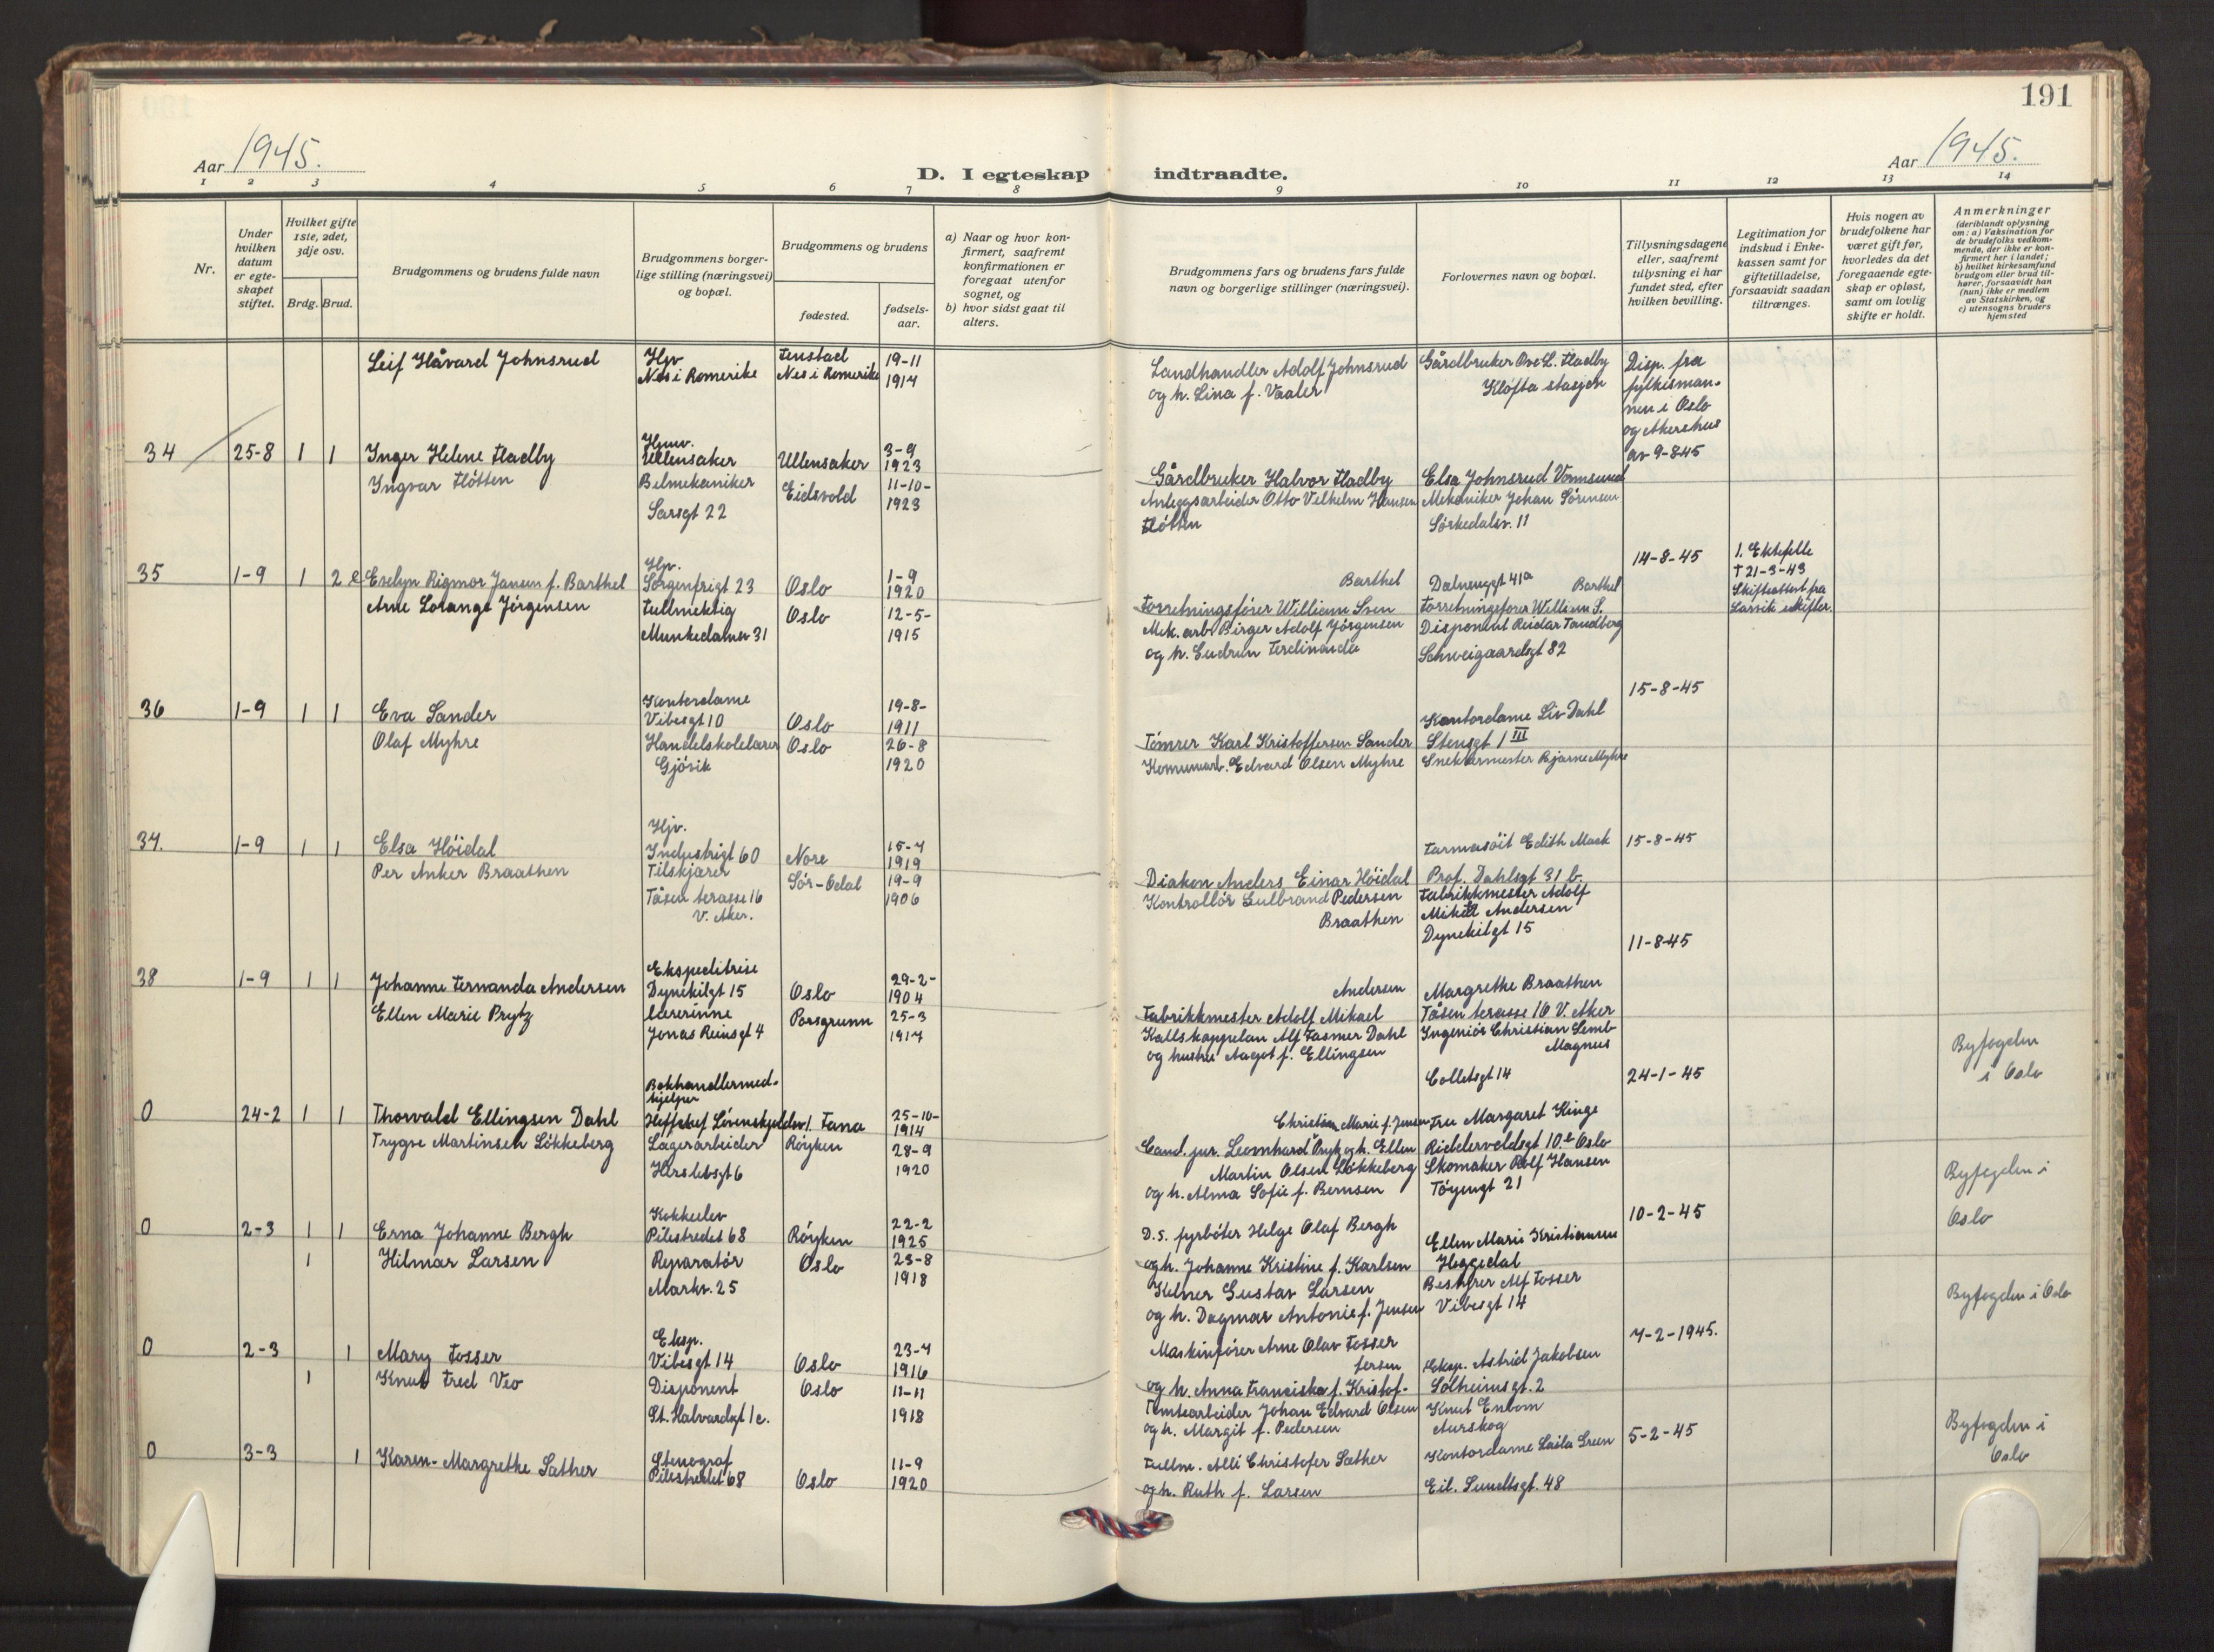 191
Aar 1945.
D. I egteskap indtraadte.
Aar 1945.
1 2 3 4 5 6 7 8 9 10 11 12 13 14
Nr.
Under
hvilken
datum
er egte-
skapet
stiftet.
Hvilket gifte
1ste, 2det,
3dje osv.
Brdg. Brud.
Brudgommens og brudens fulde navn
Brudgommens borger-
lige stilling (næringsvei)
og bopæl.
Brudgommens og brudens
fødested.
fødsels-
aar.
a) Naar og hvor kon-
firmert, saafremt
konfirmationen er
foregaat utenfor
sognet, og
b) hvor sidst gaat til
alters.
Brudgommens fars og brudens fars fulde
navn og borgerlige stillinger (næringsvei).
Forlovernes navn og bopæl.
Tillysningsdagene
eller, saafremt
tillysning ei har
fundet sted, efter
hvilken bevilling.
Legitimation for
indskud i Enke-
kassen samt for
giftetilladelse,
forsaavidt saadan
tiltrænges.
Hvis nogen av
brudefolkene har
været gift før,
hvorledes da det
foregaaende egte-
skap er opløst,
samt om lovlig
skifte er holdt.
Anmerkninger
(deriblandt oplysning
om: a) Vaksination for
de brudefolks vedkom-
mende, der ikke er kon-
firmert her i landet;
b) hvilket kirkesamfund
brudgom eller brud til-
hører, forsaavidt han
(hun) ikke er medlem
av Statskirken, og
c) utensogns bruders
hjemsted
Leif Håvard Johnsrud
Nes i Romerike
Nes i Romerike
19-11
1914
Landhandler Adolf Johnsrud
og h. Lina f. Vaaler
Gårdbruker Ove L. Hadby
Kløfta stasjon
Disp. fra
fylkesman-
nen i Oslo
og Akershus
av 9-8-45
34 25-8 1 1 Inger Helene Hadby
Hmv.
Ullensaker
Ullensaker
3-9
1923
Gårdbruker Halvor Hadby
Elsa Johnsrud Vormsund
Ingvar Fløtten
Bilmekaniker
Sarsgt 22
Eidsvold
11-10-
1923
Anleggsarbeider Otto Vilhelm Hansen
Fløtten
Mekaniker Johan Sørensen
Sørkedalsv. 11
14-8-45
1. Ektefelle
† 21-3-43
Skifteattest fra
Larvik
35 1-9 1 2 Evelyn Rigmor Jansen f. Barthel
Hjv.
Sorgenfrigt 23
Oslo
1-9
1920
Barthel
Forretningsfører William Sven
Dalsveggt 41a
Barthel
Forretningsfører William S.
Arne Lorange Jørgensen
Fullmektig
Munkedamsv 31
Oslo
12-5-
1915
Mek. arb. Birger Adolf Jørgensen
og h. Gudrun Ferdinanda
Disponent Reidar Tandberg
Schweigaardsgt 82
15-8-45
36 1-9 1 1 Eva Sander
Kontordame
Vibesgt 10
Oslo
19-8-
1911
Tømrer Karl Kristoffersen Sander
Kontordame Liv Dahl
Stensgt 1 III
Olaf Myhre
Handelskolelærer
Gjøvik
Oslo
26-8
1920
Kommunearb. Edvard Olsen Myhre
Snekkermester Bjarne Myhre
37. 1-9 1 1 Elsa Høidal
Hjv.
Industrigt 60
Nore
15-7
1919
Diakon Anders Einar Høidal
Farmasøit Edith Mack
Prof. Dahlsgt 31 b.
15-8-45
Per Anker Braathen
Tilskjærer
Tåsen terasse 16
V. Aker.
Sør-Odal
19-9
1906
Kontrollør Gulbrand Pedersen
Braathen
Fabrikkmester Adolf
Mikael Andersen
Dynekilgt 15
11-8-45
38 1-9 1 1 Johanne Fernanda Andersen
Ekspeditrise
Dynekilgt 15
Oslo
29-2-
1904
Andersen
Fabrikkmester Adolf Mikael
Margrethe Braathen
Tåsen terasse 16 V. Aker
Ellen Marie Prytz
lærerinne
Jonas Reinsgt 4
Porsgrunn
25-3
1917
Kallskappelan Alf Fasmer Dahl
og hustru Aagot f. Ellingsen
Ingeniør Christian Lemb
Magnus
Colletsgt 14
24-1-45
Byfogden
i Oslo
0 24-2 1 1 Thorvald Ellingsen Dahl
Bokhandlermed-
hjelper
Hoffsjef Løvenskjoldsv 1.
Tana
25-10-
1914
Christian Marie f. Jensen
Cand. jur. Leonhard Prytz og h. Ellen
Fru Margaret Kinge
Riddervoldsgt 10 Oslo
Trygve Martinsen Løkkeberg
Lagerarbeider
Herslebsgt 6
Røyken
28-9
1920
Martin Olsen Løkkeberg
og h. Alma Sofie f. Bernsen
Skomaker Rolf Hansen
Tøyengt 21
10-2-45
Byfogden i
Oslo
0 2-3 1 1 Erna Johanne Bergh
Kokkelev
Pilestredet 68
Røyken
22-2
1925
D.S. fyrbøter Helge Olaf Bergh
og h. Johanne Kristine f. Karlsen
Ellen Marie Kristiansen
Heggedal
1 Hilmar Larsen
Reparatør
Markv. 25
Oslo
23-8
1918
Kelner Gustav Larsen
og h. Dagmar Antonie f. Jensen
Bestyrer Alf Fosser
Vibesgt 14
7-2-1945.
Byfogden i Oslo
0 2-3 1 Mary Fosser
Eksp.
Vibesgt 14
Oslo
23-7
1916
Maskinfører Arne Olav Fosser
fersen
og h. Anna Franciska f. Kristof-
Eksp. Astrid Jakobsen
Solheimsgt. 2
1 Knut Fred Veo
Disponent
St. Halvardsgt 1c.
Oslo
11-11
1918
Tomtearbeider Johan Edvard Olsen
og h. Margit f. Pedersen
Knut Enbom
Aurskog
5-2-45
Byfogden i
Oslo
0 3-3 1 Karen-Margrethe Sæther
Stenograf
Pilestredet 68
Oslo
11-9
1920
Fullm. Alli Christofer Sæther
og h. Ruth f. Larsen
Kontordame Laila Green
Eil. Sundtsgt. 48